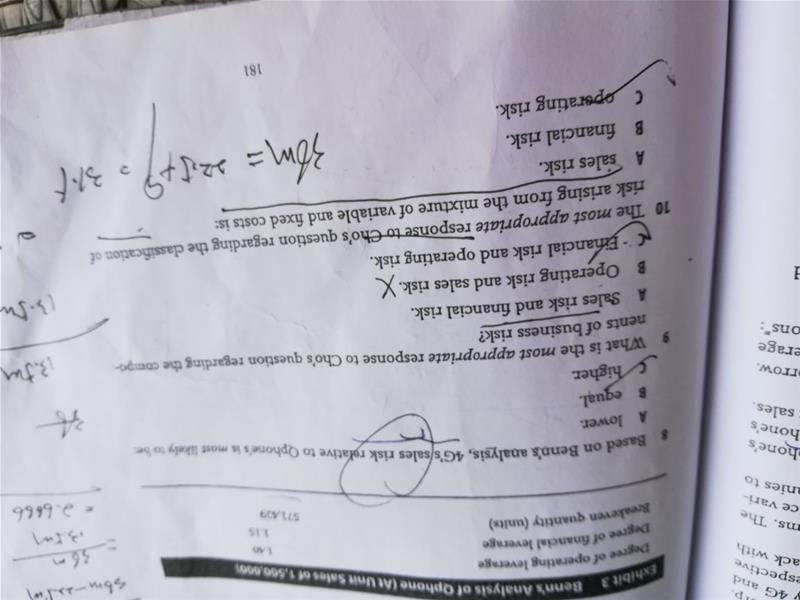 Exhibit 3 Benn's Analysis of Qphone (At Unit Sales of 1,500,000)
Degree of operating leverage 1.40
Degree of financial leverage 1.15
Breakeven quantity (units) 571,429
8 Based on Benn's analysis, 4G's sales risk relative to Qphone's is most likely to be:
A lower.
B equal.
C higher.
9 What is the most appropriate response to Cho's question regarding the compo-
nents of business risk?
A Sales risk and financial risk.
B Operating risk and sales risk. X
C Financial risk and operating risk.
10 The most appropriate response to Cho's question regarding the classification of
risk arising from the mixture of variable and fixed costs is:
A sales risk.
B financial risk.
C operating risk.
181
36m
13.5m
= 2.6666
13.5m
13.5m
4G and
espective
ack with
ns. The
ce vari-
anies to
phone's
hone's
sales.
rrow.
erage
ons":